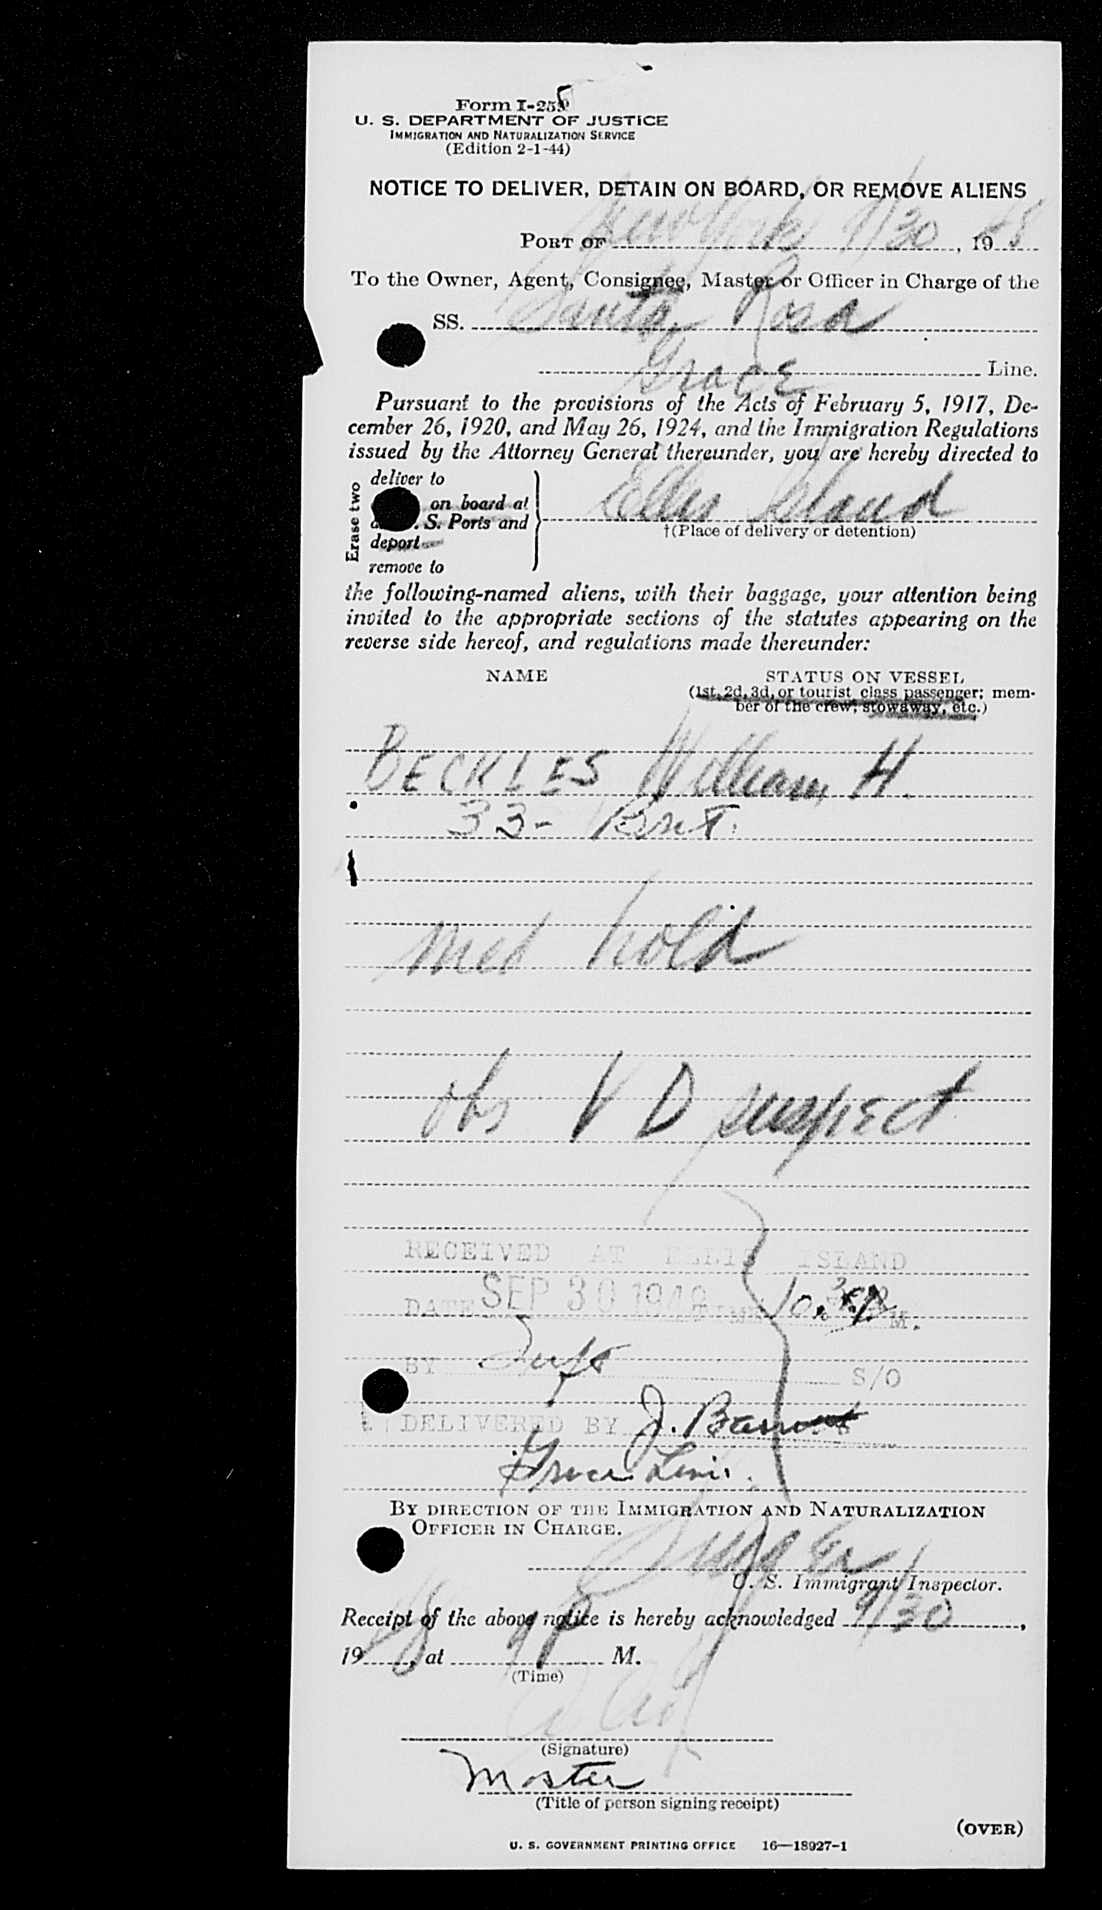 Form I-259
U. S. DEPARTMENT OF JUSTICE
IMMIGRATION AND NATURALIZATION SERVICE
(Edition 2-1-44)
NOTICE TO DELIVER, DETAIN ON BOARD, OR REMOVE ALIENS
PORT OF New York 9/30, 1948
To the Owner, Agent, Consignee, Master or Officer in Charge of the
SS. Santa Rosa
Grace Line.
Pursuant to the provisions of the Acts of February 5, 1917, De-
cember 26, 1920, and May 26, 1924, and the Immigration Regulations
issued by the Attorney General thereunder, you are hereby directed to
Erase two
deliver to
on board at
S. Ports and
deport
remove to
Ellis Island
†(Place of delivery or detention)
the following-named aliens, with their baggage, your attention being
invited to the appropriate sections of the statutes appearing on the
reverse side hereof, and regulations made thereunder:
NAME STATUS ON VESSEL
(1st, 2d, 3d, or tourist class passenger; mem-
ber of the crew; stowaway, etc.)
BECKLES William H.
33- Brit.
med hold
obs V D suspect
RECEIVED AT ELLIS ISLAND
DATE SEP 30 1948 TIME 10 M.
BY S/O
DELIVERED BY J.
Grace Line.
BY DIRECTION OF THE IMMIGRATION AND NATURALIZATION
OFFICER IN CHARGE.
U. S. Immigrant Inspector.
Receipt of the above notice is hereby acknowledged 9/30,
1948, at 9 P M.
(Time)
(Signature)
Master
(Title of person signing receipt)
(OVER)
U. S. GOVERNMENT PRINTING OFFICE 16—18927-1